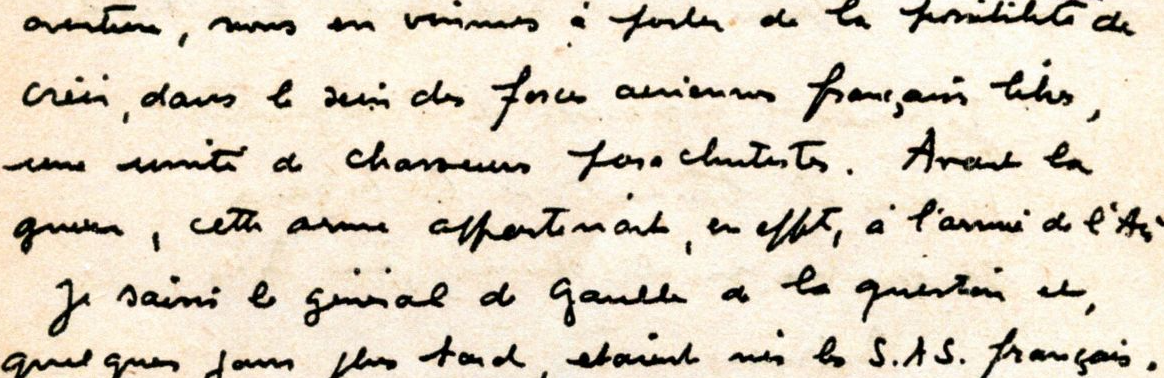 aventure, nous en vînmes à parler de la possibilité de
créer, dans le sein des forces aériennes françaises libres,
une unité de chasseurs parachutistes. Avant la
guerre, cette arme appartenait, en effet, à l'armée de l'Air
Je saisis le général de Gaulle de la question et,
quelques jours plus tard, étaient nés les S.A.S. français.